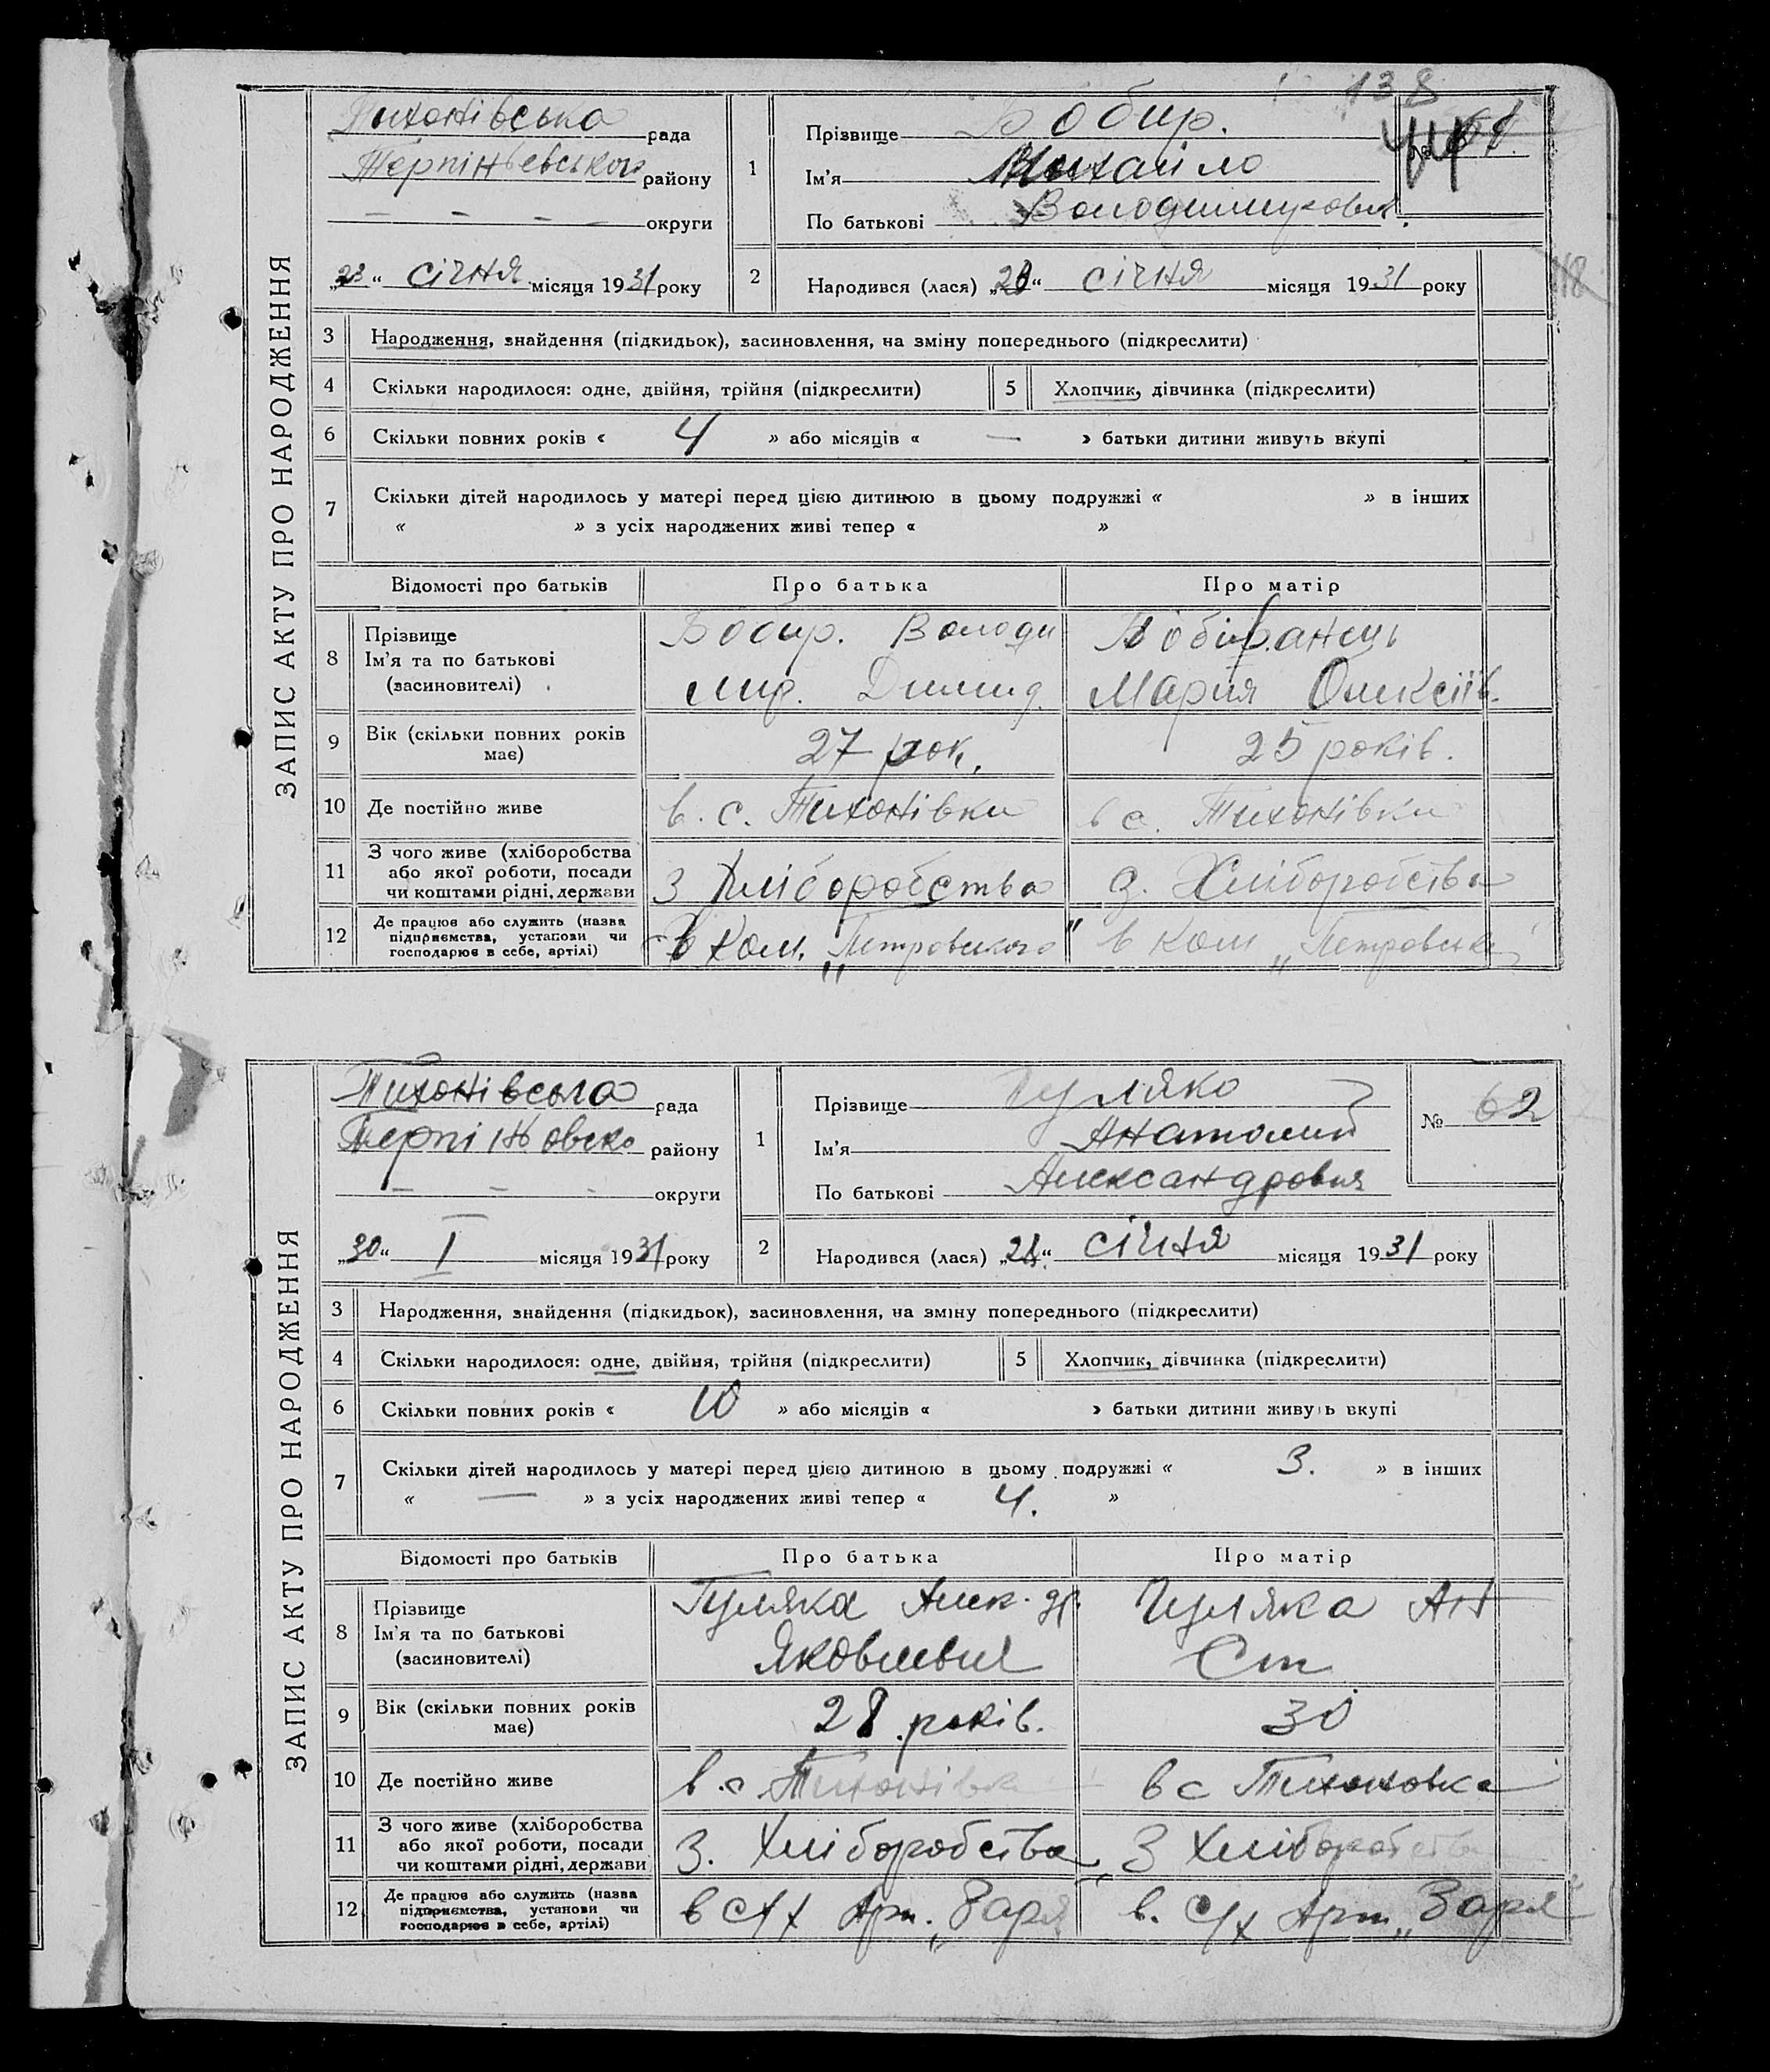 138
ЗАПИС АКТУ ПРО НАРОДЖЕННЯ
Тихонівська рада
Терпіньевського району
— — — — округи
„23“ січня місяця 1931 року
1
Прізвище Бобир.
Ім'я Михайло
По батькові Володимирович.
№ 61
44
2
Народився (лася) „20“ січня місяця 1931 року
118
3 Народження, знайдення (підкидьок), засиновлення, на зміну попереднього (підкреслити)
4 Скільки народилося: одне, двійня, трійня (підкреслити) 5 Хлопчик, дівчинка (підкреслити)
6 Скільки повних років « 4 » або місяців « — » батьки дитини живуть вкупі
7 Скільки дітей народилось у матері перед цією дитиною в цьому подружжі « » в інших
« » з усіх народжених живі тепер « »
Відомості про батьків Про батька Про матір
8 Прізвище
Ім'я та по батькові
(засиновителі)
Бобир. Володи
мир. Димид.
Мария Олексіїв.
9 Вік (скільки повних років має) 27 рок. 25 років.
10 Де постійно живе в. с. Тихонівки в с. Тихонівки
11 З чого живе (хліборобства
або якої роботи, посади
чи коштами рідні, держави
З Хліборобства З. Хліборобства
12 Де працює або служить (назва
підприємства, установи чи
господарює в себе, артілі)
в Ком. „Петровського" в Ком „Петровськ
ЗАПИС АКТУ ПРО НАРОДЖЕННЯ
Тихонівська рада
району
— — - округи
„30“ I місяця 1931 року
1
Прізвище Гуляко
Ім'я Анатолий
По батькові Александрович
№ 62
2
Народився (лася) „28“ січня місяця 1931 року
3 Народження, знайдення (підкидьок), засиновлення, на зміну попереднього (підкреслити)
4 Скільки народилося: одне, двійня, трійня (підкреслити) 5 Хлопчик, дівчинка (підкреслити)
6 Скільки повних років « 10 » або місяців « » батьки дитини живуть вкупі
7 Скільки дітей народилось у матері перед цією дитиною в цьому подружжі « 3. » в інших
« — » з усіх народжених живі тепер « 4. »
Відомості про батьків Про батька Про матір
8 Прізвище
Ім'я та по батькові
(засиновителі)
Гуляка Алек-др.
Яковлевич
Гуляка Ан
Ст
9 Вік (скільки повних років має) 28 років. 30
10 Де постійно живе в. с Тихонівка в с Тихоновка
11 З чого живе (хліборобства
або якої роботи, посади
чи коштами рідні, держави
З. Хліборобства З Хліборобства
12 Де працює або служить (назва
підприємства, установи чи
господарює в себе, артілі)
в с/х Арт. „Заря" в. с/х Арт „Заря"